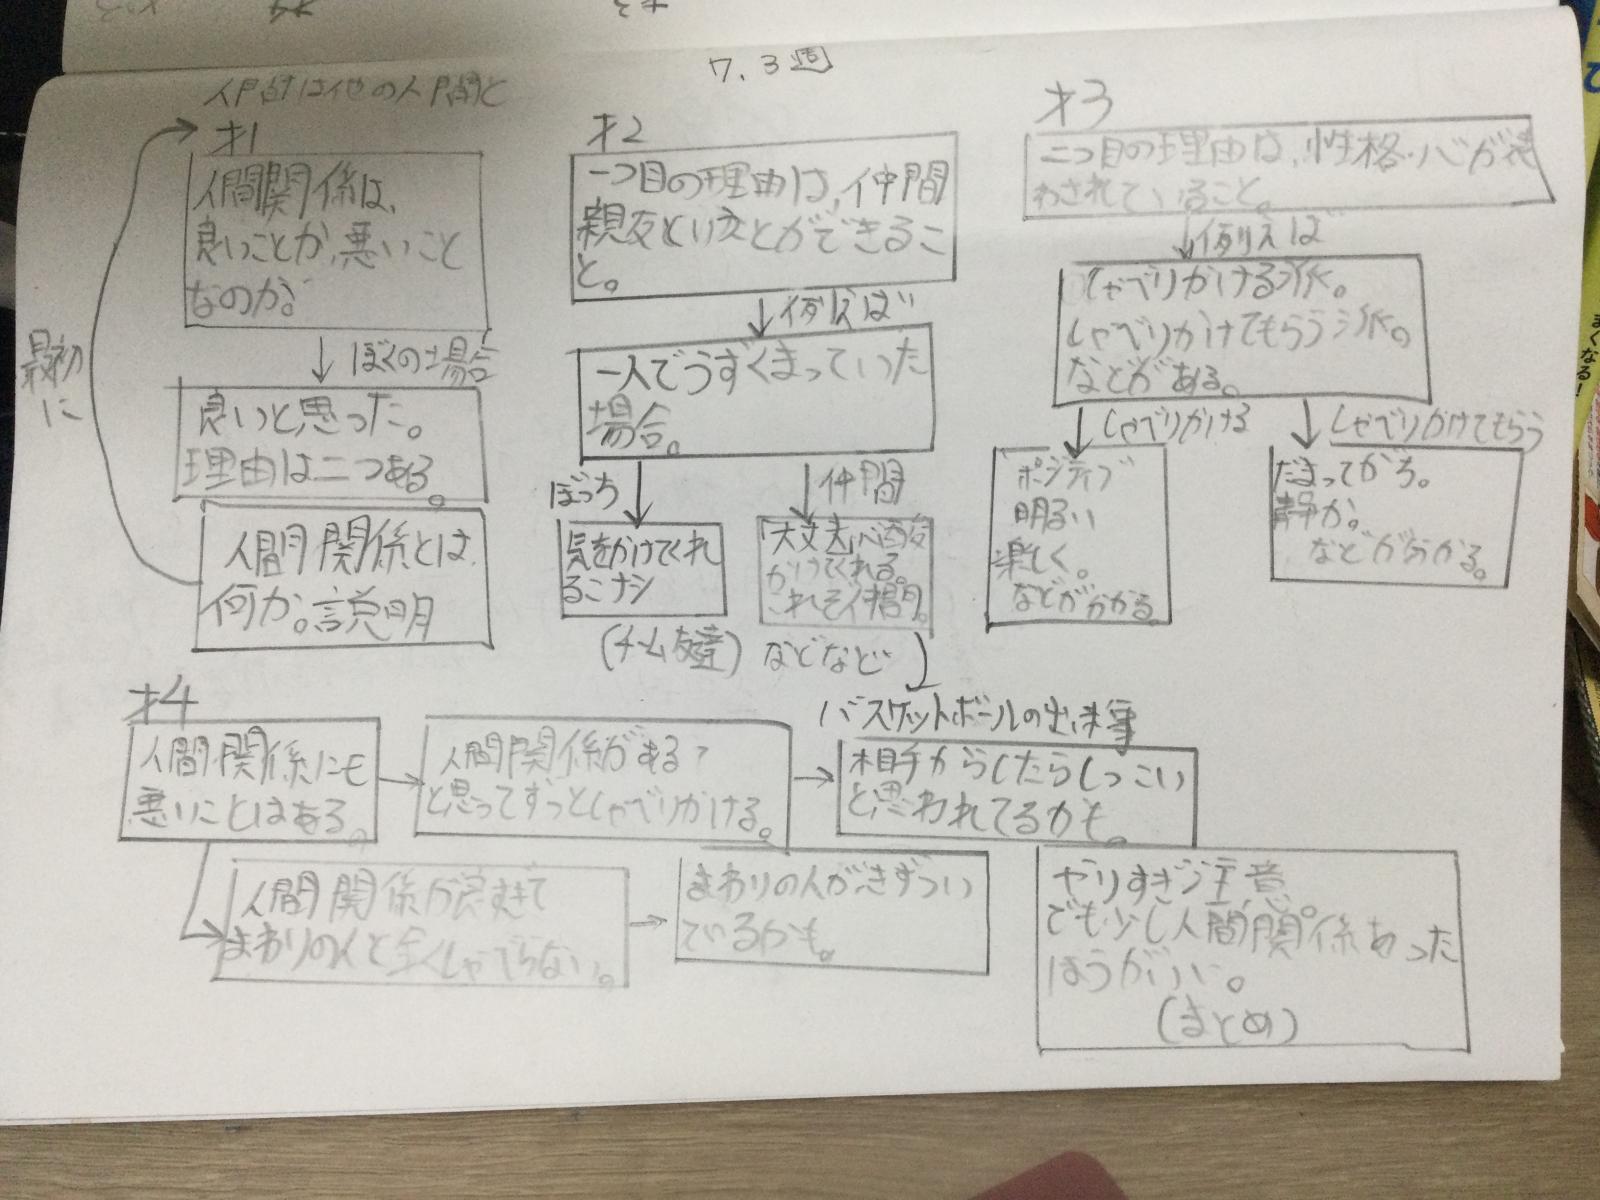 7.3週
人間は他の人間と
才1
人間関係は、
良いことか、悪いこと
なのか。
↓ぼくの場合
良いと思った。
理由は二つある。
人間関係とは
何か。説明
最初
に
才2
一つ目の理由は、仲間
親友といることができるこ
と。
↓例えば
一人でうずくまっていた
場合。
ぼっち
気をかけてくれ
るこナシ
仲間
「大丈夫」心配
かけてくれる。
これぞ仲間。
(チーム友達)などなど
才3
二つ目の理由は、性格・心が表
わされていること。
↓例えば
しゃべりかける派。
しゃべりかけてもらう派。
などがある。
しゃべりかける
ポジティブ
明るい
楽しく。
などが分かる。
しゃべりかけてもらう
だまってがち。
静か。
などが分かる。
才4
人間関係にも
悪いことはある。
人間関係がある?
と思ってずっとしゃべりかける。
バスケットボールの出来事
相手からしたらしっこい
と思われてるかも。
人間関係が良すぎて
まわりの人と全くしゃべらない。
まわりの人がきずつい
でるかも。
やりすぎ注意
でも少し人間関係あった
ほうがいい。
(まとめ)
まくなる!